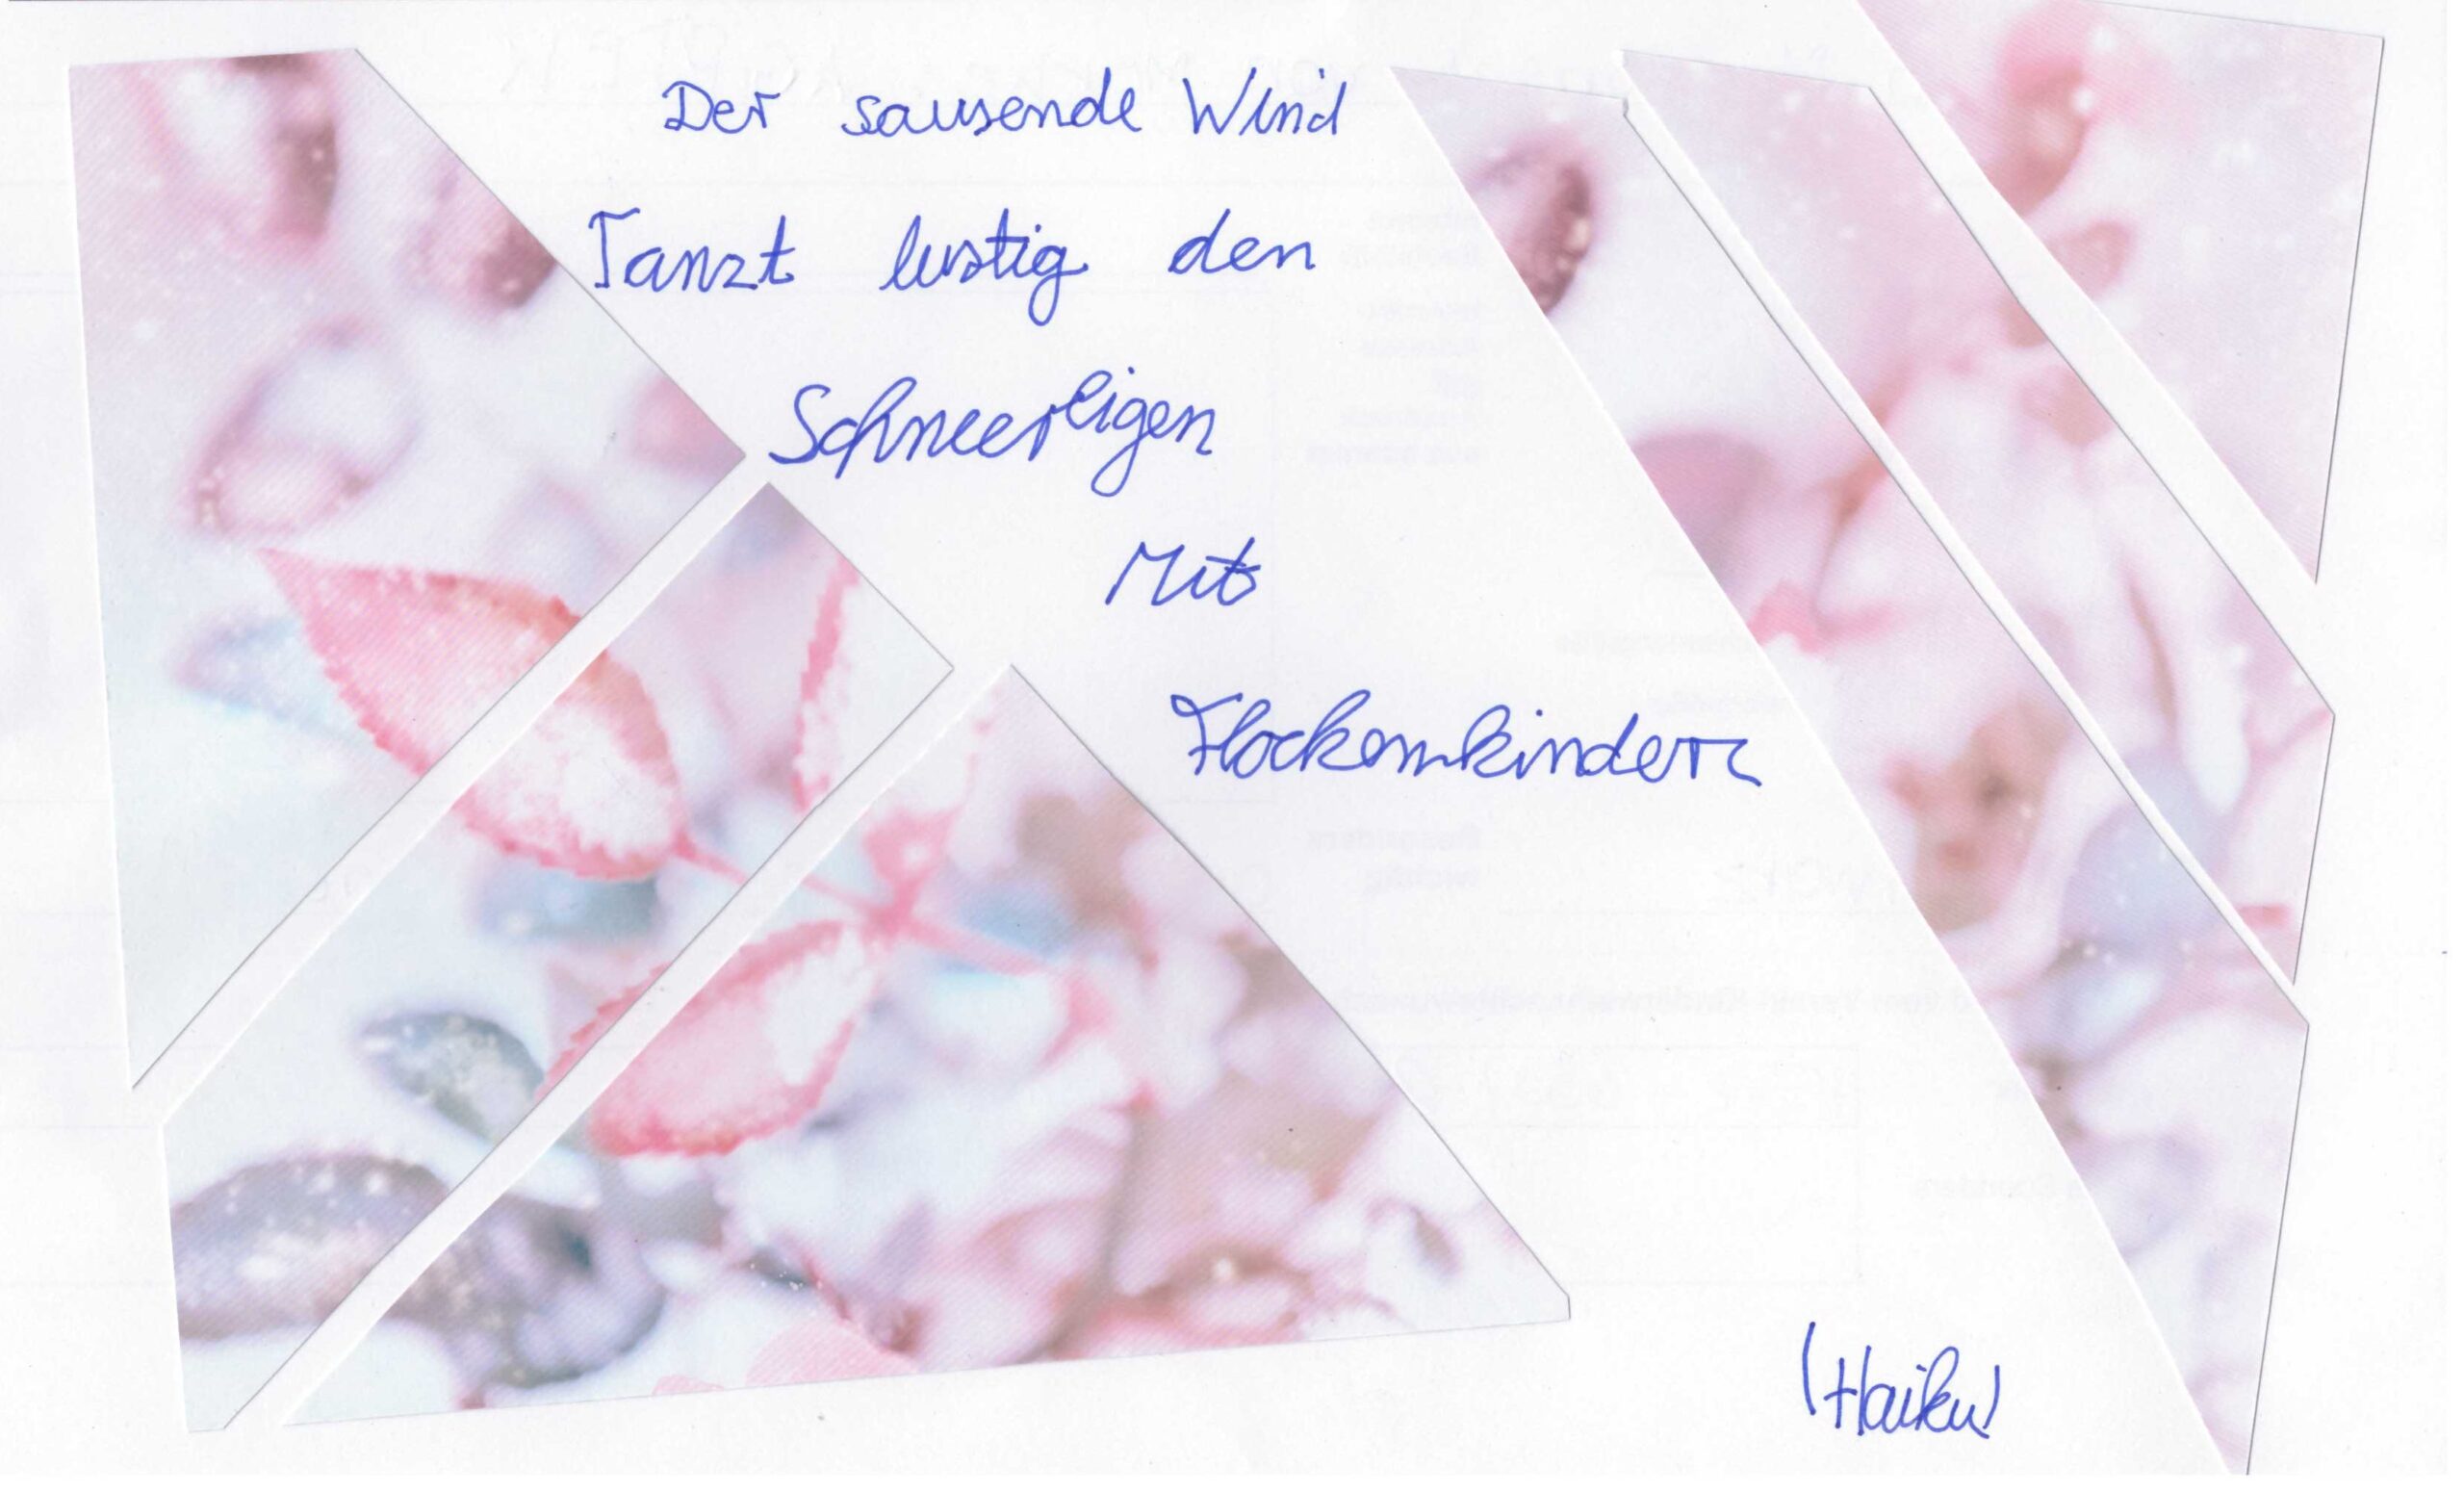 Der sausende Wind
Tanzt lustig den
Schneereigen
Mit
Flockenkindern
(Haiku)